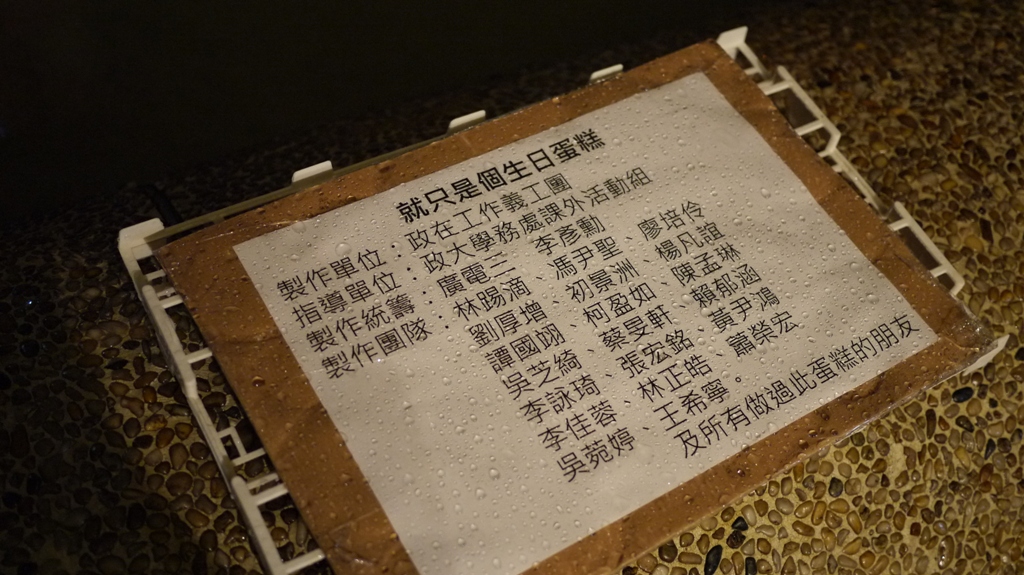 就只是個生日蛋糕
製作單位：政在工作義工團
指導單位：政大學務處課外活動組
製作統籌：廣電三 李彥勳
製作團隊：林暘滴、馮尹聖、廖培伶
劉厚增、初景洲、楊凡誼
譚國翊、柯盈如、陳孟琳
吳芝綺、蔡旻軒、賴郁涵
李詠琦、張宏銘、黃尹鴻
李佳蓉、林正皓、蕭榮宏
吳苑婷、王希寧。
及所有做過此蛋糕的朋友